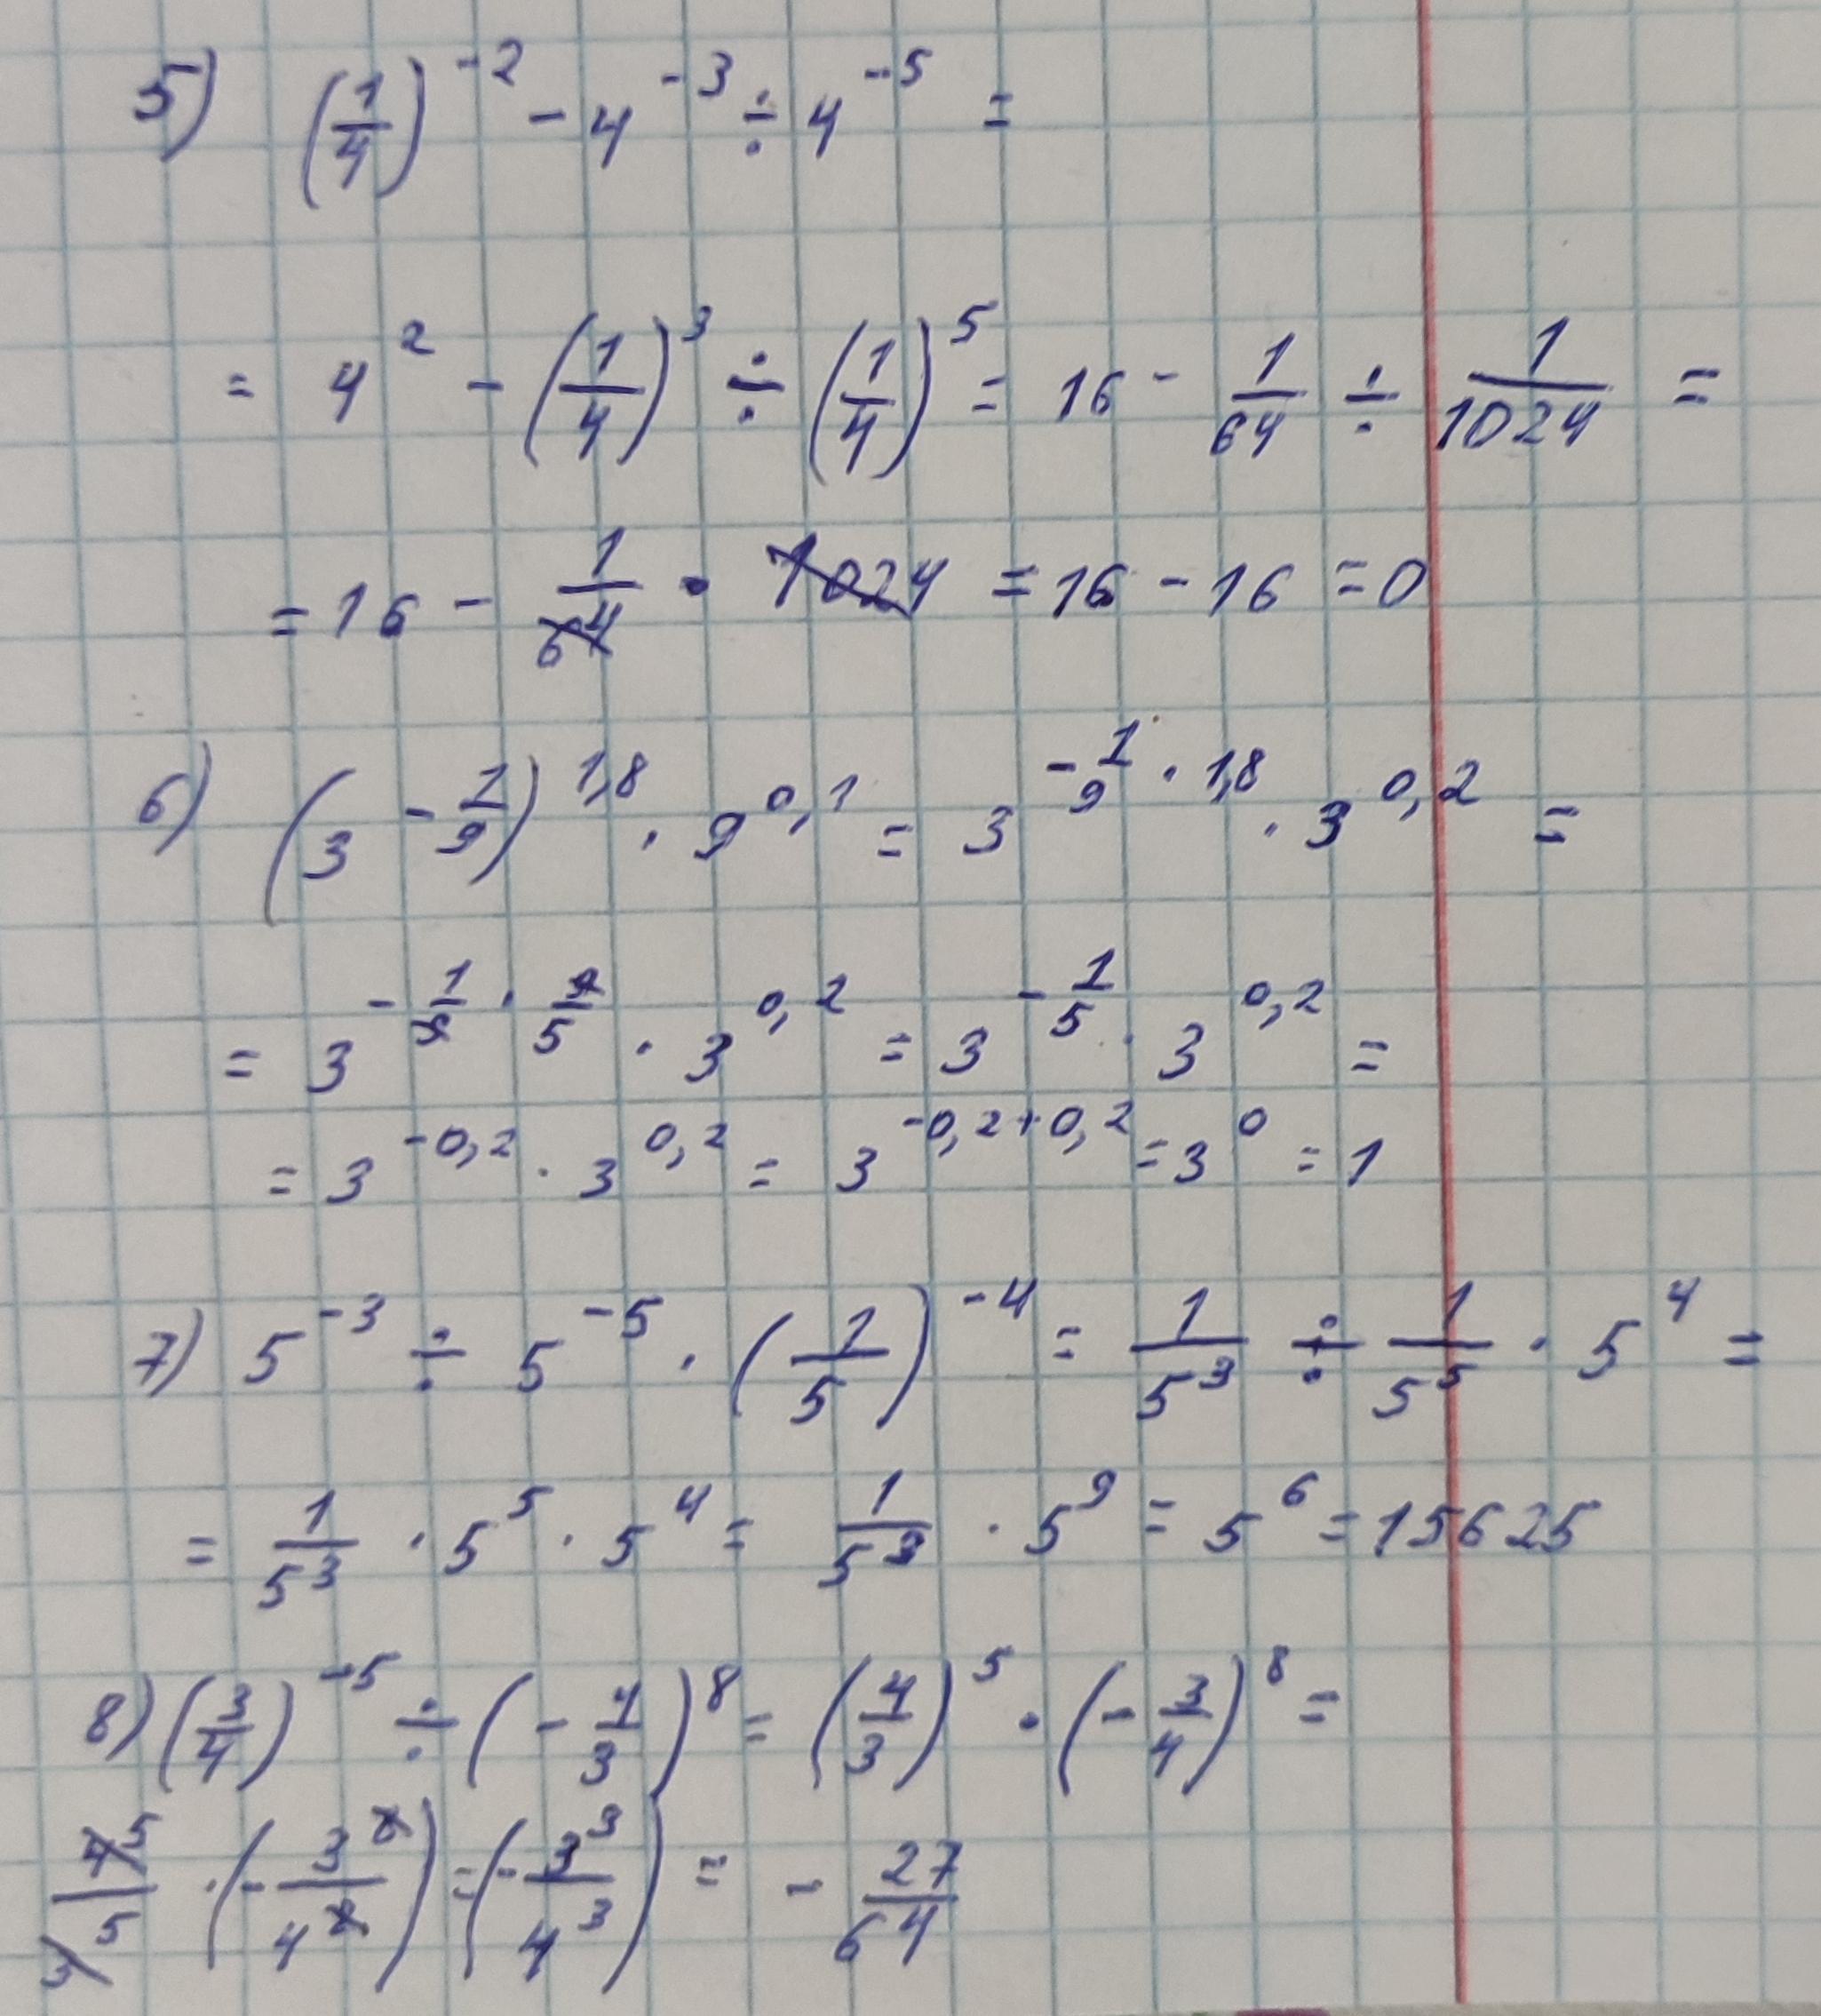 5) (1/4)^-2 - 4^-3 ÷ 4^-5 =
= 4^2 - (1/4)^3 ÷ (1/4)^5 = 16 - 1/64 ÷ 1/1024 =
= 16 - 1/64 · 1024 = 16 - 16 = 0
6) (3^-1/9)^1,8 · 9^0,1 = 3^-1/9 · 1,8 · 3^0,2 =
= 3^-1/9 · 9/5 · 3^0,2 = 3^-1/5 · 3^0,2 =
= 3^-0,2 · 3^0,2 = 3^-0,2+0,2 = 3^0 = 1
7) 5^-3 ÷ 5^-5 · (1/5)^-4 = 1/5^3 ÷ 1/5^5 · 5^4 =
= 1/5^3 · 5^5 · 5^4 = 1/5^3 · 5^9 = 5^6 = 15625
8) (3/4)^-5 ÷ (-4/3)^8 = (4/3)^5 · (-3/4)^8 =
4^5/3^5 · (-3^8/4^8) = (-3^3/4^3) = -27/64